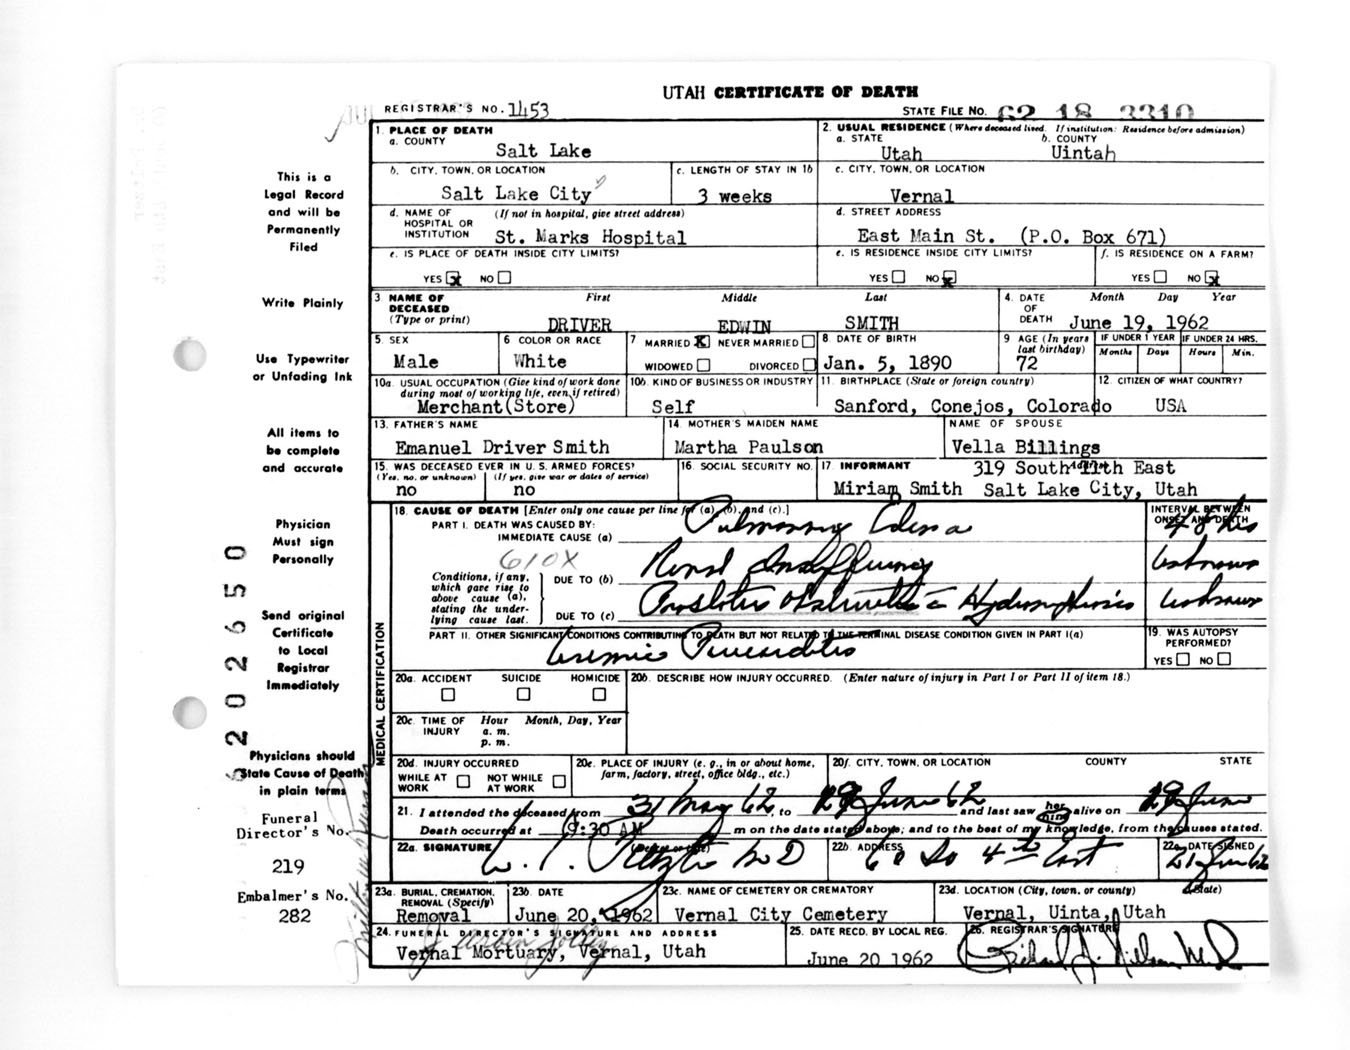 UTAH CERTIFICATE OF DEATH
REGISTRAR'S NO. 1453
STATE FILE NO. 62 18 3310
1. PLACE OF DEATH
a. COUNTY
Salt Lake
2. USUAL RESIDENCE (Where deceased lived. If institution: Residence before admission)
a. STATE b. COUNTY
Utah Uintah
b. CITY, TOWN, OR LOCATION
Salt Lake City
c. LENGTH OF STAY IN 1b
3 weeks
c. CITY, TOWN, OR LOCATION
Vernal
d. NAME OF HOSPITAL OR INSTITUTION (If not in hospital, give street address)
St. Marks Hospital
d. STREET ADDRESS
East Main St. (P.O. Box 671)
e. IS PLACE OF DEATH INSIDE CITY LIMITS?
YES x NO
e. IS RESIDENCE INSIDE CITY LIMITS?
YES NO x
f. IS RESIDENCE ON A FARM?
YES NO x
3. NAME OF DECEASED (Type or print) First Middle Last
DRIVER EDWIN SMITH
4. DATE OF DEATH Month Day Year
June 19, 1962
5. SEX
Male
6 COLOR OR RACE
White
7 MARRIED x NEVER MARRIED
WIDOWED DIVORCED
8. DATE OF BIRTH
Jan. 5, 1890
9 AGE (In years last birthday)
72
IF UNDER 1 YEAR IF UNDER 24 HRS.
Months Days Hours Min.
10a. USUAL OCCUPATION (Give kind of work done during most of working life, even if retired)
Merchant(Store)
10b. KIND OF BUSINESS OR INDUSTRY
Self
11. BIRTHPLACE (State or foreign country)
Sanford, Conejos, Colorado
12. CITIZEN OF WHAT COUNTRY?
USA
13. FATHER'S NAME
Emanuel Driver Smith
14. MOTHER'S MAIDEN NAME
Martha Paulson
NAME OF SPOUSE
Vella Billings
15. WAS DECEASED EVER IN U.S. ARMED FORCES?
(Yes, no, or unknown) (If yes, give war or dates of service)
no no
16. SOCIAL SECURITY NO.
17. INFORMANT 319 South 11th East
Miriam Smith Salt Lake City, Utah
MEDICAL CERTIFICATION
18. CAUSE OF DEATH [Enter only one cause per line for (a), (b), and (c).]
INTERVAL BETWEEN ONSET AND DEATH
PART I. DEATH WAS CAUSED BY:
IMMEDIATE CAUSE (a) Pulmonary Edema 48 hrs
610X
Conditions, if any, which gave rise to above cause (a), stating the underlying cause last.
DUE TO (b) Renal Insufficiency Unknown
DUE TO (c) Prostatic Obstruction c Hydronephrosis Unknown
PART II. OTHER SIGNIFICANT CONDITIONS CONTRIBUTING TO DEATH BUT NOT RELATED TO THE TERMINAL DISEASE CONDITION GIVEN IN PART I(a)
Uremic Pericarditis
19. WAS AUTOPSY PERFORMED?
YES NO
20a. ACCIDENT SUICIDE HOMICIDE
20b. DESCRIBE HOW INJURY OCCURRED. (Enter nature of injury in Part I or Part II of item 18.)
20c. TIME OF INJURY Hour Month, Day, Year
a. m.
p. m.
20d. INJURY OCCURRED
WHILE AT WORK NOT WHILE AT WORK
20e. PLACE OF INJURY (e. g., in or about home, farm, factory, street, office bldg., etc.)
20f. CITY, TOWN, OR LOCATION COUNTY STATE
21. I attended the deceased from 31 May 62, to 19 June 62 and last saw her him alive on 19 June
Death occurred at 9:30 AM m on the date stated above; and to the best of my knowledge, from the causes stated.
22a. SIGNATURE (Degree or title)
MD
22b. ADDRESS
60 So 4th East
22c. DATE SIGNED
21 June 62
23a. BURIAL, CREMATION, REMOVAL (Specify)
Removal
23b. DATE
June 20, 1962
23c. NAME OF CEMETERY OR CREMATORY
Vernal City Cemetery
23d. LOCATION (City, town, or county) (State)
Vernal, Uinta, Utah
24. FUNERAL DIRECTOR'S SIGNATURE AND ADDRESS
Vernal Mortuary, Vernal, Utah
25. DATE RECD. BY LOCAL REG.
June 20 1962
26. REGISTRAR'S SIGNATURE
This is a
Legal Record
and will be
Permanently
Filed
Write Plainly
Use Typewriter
or Unfading Ink
All items to
be complete
and accurate
Physician
Must sign
Personally
Send original
Certificate
to Local
Registrar
Immediately
Physicians should
State Cause of Death
in plain terms
Funeral
Director's No.
219
Embalmer's No.
282
6202650